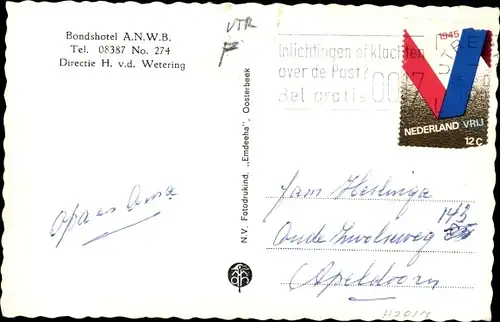 Bondshotel A.N.W.B.
Tel. 08387 No. 274
Directie H. v.d. Wetering
VTR
F
Inlichtingen of klachten
over de Post?
Bel gratis 0017
1945
NEDERLAND VRIJ
12c
N.V. Fotodrukind. „Emdeeha”, Oosterbeek
opa en oma
fam Heslinga
Oude Zwolseweg 143
Apeldoorn